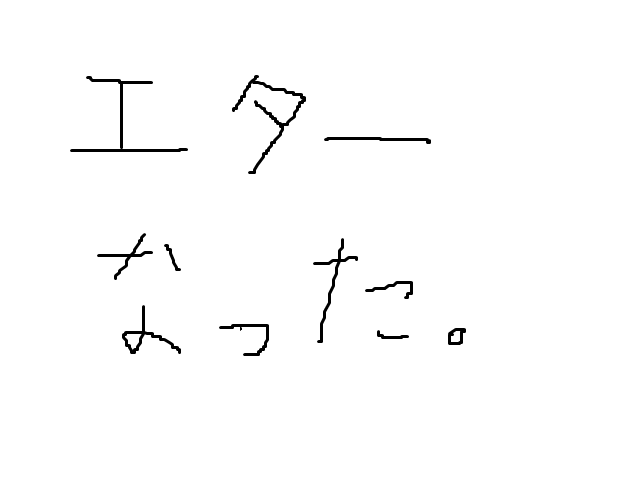 エター
なった。